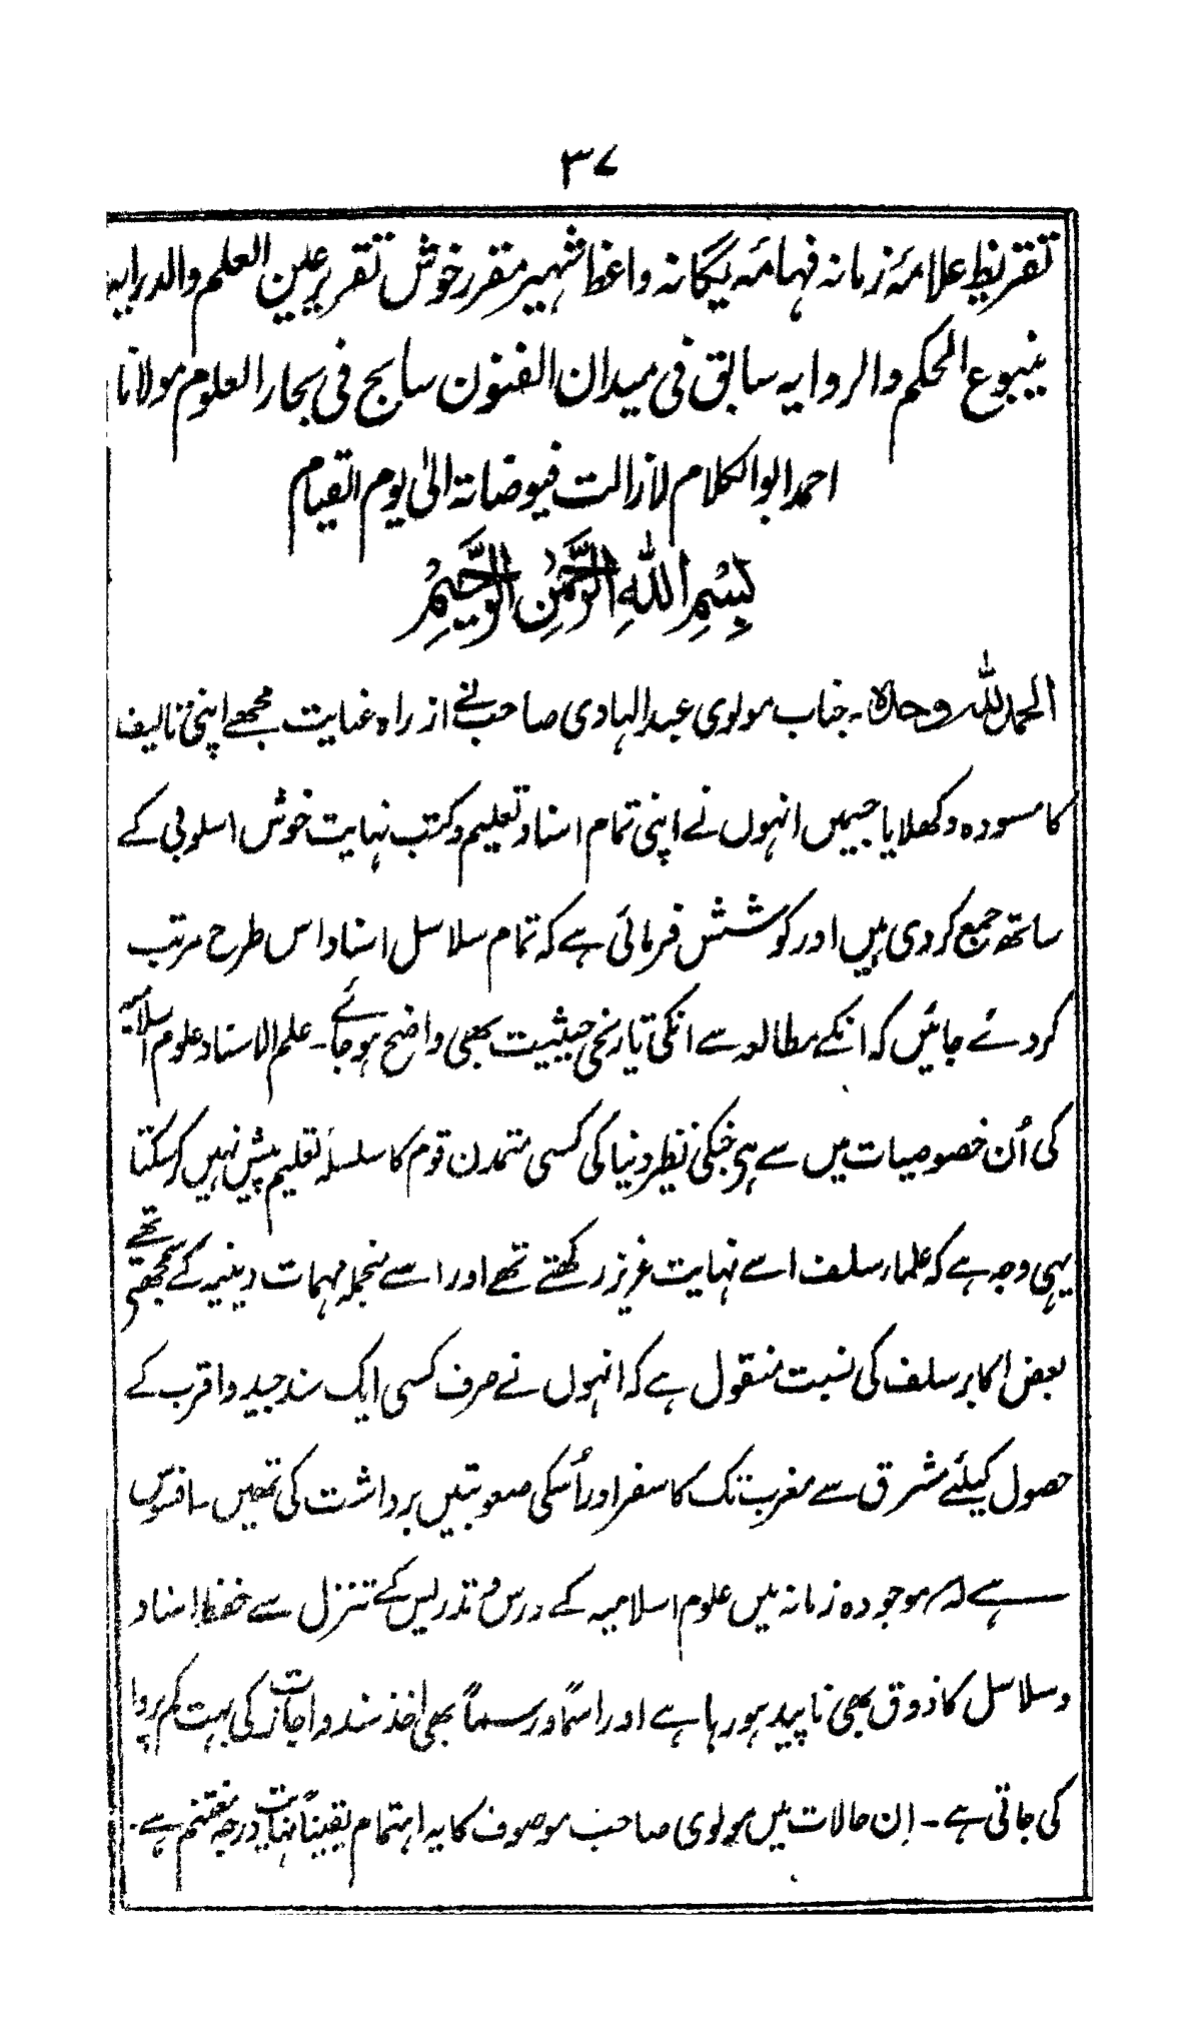 ۳۷
تقریظ علامۂ زمانہ فہامۂ یگانہ واعظ شہیر مقرر خوش تقریر عین العلم والدرایہ
ینبوع الحکم والروایہ سابق فی میدان الفنون سابح فی بحار العلوم مولانا
احمد ابو الکلام لازالت فیوضاتہ الیٰ یوم القیام
بِسْمِ اللّٰهِ الرَّحْمٰنِ الرَّحِیْمِ
الحمد للّٰہ وحدہ ۔ جناب مولوی عبد الہادی صاحب نے از راہ عنایت مجھے اپنی تالیف
کا مسودہ دکھلایا جسمیں انہوں نے اپنی تمام اسناد تعلیم و کتب نہایت خوش اسلوبی کے
ساتھ جمع کردی ہیں اور کوشش فرمائی ہے کہ تمام سلاسل اسناد اس طرح مرتب
کردئے جائیں کہ انکے مطالعہ سے انکی تاریخی حیثیت بھی واضح ہوجائے ۔ علم الاسناد علوم اسلامیہ
کی اُن خصوصیات میں سے ہے جنکی نظیر دنیا کی کسی متمدن قوم کا سلسلۂ تعلیم پیش نہیں کرسکتا
یہی وجہ ہے کہ علماء سلف اسے نہایت عزیز رکھتے تھے اور اسے منجملہ مہمات دینیہ کے سمجھتے تھے
بعض اکابر سلف کی نسبت منقول ہے کہ انہوں نے صرف کسی ایک سند جید و اقرب کے
حصول کیلئے مشرق سے مغرب تک کا سفر اور اُسکی صعوبتیں برداشت کی تھیں ۔ افسوس
ہے کہ موجودہ زمانہ میں علوم اسلامیہ کے درس و تدریس کے تنزل سے حفظ اسناد
وسلاسل کا ذوق بھی ناپید ہو رہا ہے اور اسماً ورسماً بھی اخذ سند و اجازت کی بہت کم پروا
کی جاتی ہے ۔ اِن حالات میں مولوی صاحب موصوف کا یہ اہتمام یقیناً نہایت درجہ مغتنم ہے ۔